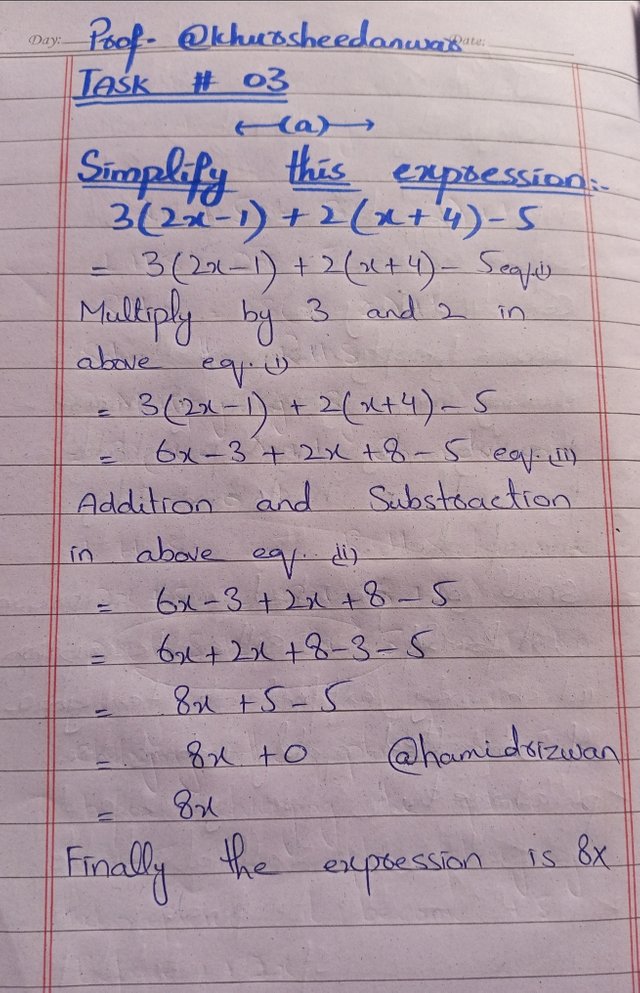 Day: Prof- @khursheedanwar Date:
TASK # 03
←(a)→
Simplify this expression:-
3(2x-1) + 2(x+4)-5
= 3(2x-1) + 2(x+4)- 5 eq.(i)
Multiply by 3 and 2 in
above eq. (i)
= 3(2x-1) + 2(x+4)-5
= 6x-3 + 2x +8-5 eq.(ii)
Addition and Substraction
in above eq. (ii)
= 6x-3+2x+8-5
= 6x+2x+8-3-5
= 8x +5-5
= 8x +0 @hamidrizwan
= 8x
Finally the expression is 8x